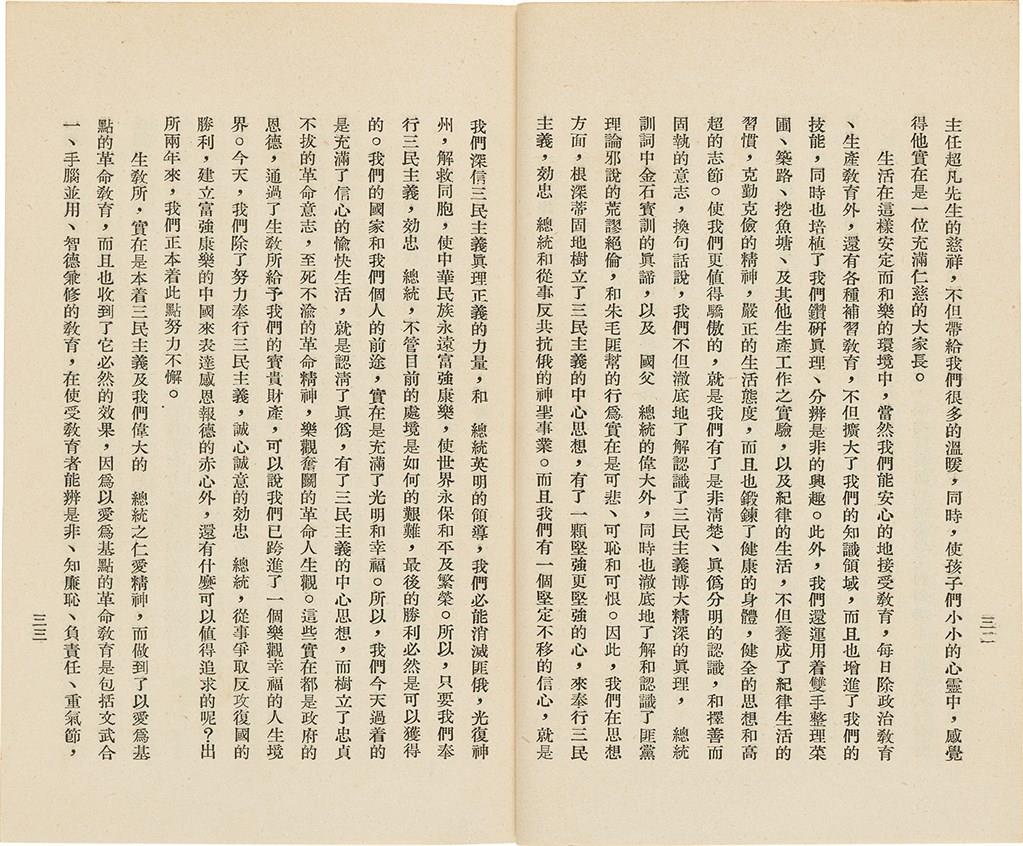 主任超凡先生的慈祥，不但帶給我們很多的溫暖，同時，使孩子們小小的心靈中，感覺
得他實在是一位充滿仁慈的大家長。
生活在這樣安定而和樂的環境中，當然我們能安心的地接受敎育，每日除政治敎育
、生產敎育外，還有各種補習敎育，不但擴大了我們的知識領域，而且也增進了我們的
技能，同時也培植了我們鑽硏眞理、分辨是非的興趣。此外，我們還運用着雙手整理菜
圃、築路、挖魚塘、及其他生產工作之實驗，以及紀律的生活，不但養成了紀律生活的
習慣，克勤克儉的精神，嚴正的生活態度，而且也鍛鍊了健康的身體，健全的思想和高
超的志節。使我們更值得驕傲的，就是我們有了是非淸楚、眞僞分明的認識，和擇善而
固執的意志，換句話說，我們不但澈底地了解認識了三民主義博大精深的眞理，　總統
訓詞中金石寶訓的眞諦，以及　國父　總統的偉大外，同時也澈底地了解和認識了匪黨
理論邪說的荒謬絕倫，和朱毛匪幫的行爲實在是可悲、可恥和可恨。因此，我們在思想
方面，根深蒂固地樹立了三民主義的中心思想，有了一顆堅強更堅強的心，來奉行三民
主義，効忠　總統和從事反共抗俄的神聖事業。而且我們有一個堅定不移的信心，就是
三二
我們深信三民主義眞理正義的力量，和　總統英明的領導，我們必能消滅匪俄，光復神
州，解救同胞，使中華民族永遠富強康樂，使世界永保和平及繁榮。所以，只要我們奉
行三民主義，効忠　總統，不管目前的處境是如何的艱難，最後的勝利必然是可以獲得
的。我們的國家和我們個人的前途，實在是充滿了光明和幸福。所以，我們今天過着的
是充滿了信心的愉快生活，就是認淸了眞僞，有了三民主義的中心思想，而樹立了忠貞
不拔的革命意志，至死不渝的革命精神，樂觀奮鬭的革命人生觀。這些實在都是政府的
恩德，通過了生敎所給予我們的寶貴財產，可以說我們已跨進了一個樂觀幸福的人生境
界。今天，我們除了努力奉行三民主義，誠心誠意的効忠　總統，從事爭取反攻復國的
勝利，建立富強康樂的中國來表達感恩報德的赤心外，還有什麽可以值得追求的呢？出
所兩年來，我們正本着此點努力不懈。
生敎所，實在是本着三民主義及我們偉大的　總統之仁愛精神，而做到了以愛爲基
點的革命敎育，而且也收到了它必然的效果，因爲以愛爲基點的革命敎育是包括文武合
一、手腦並用、智德兼修的敎育，在使受敎育者能辨是非、知廉恥、負責任、重氣節，
三三